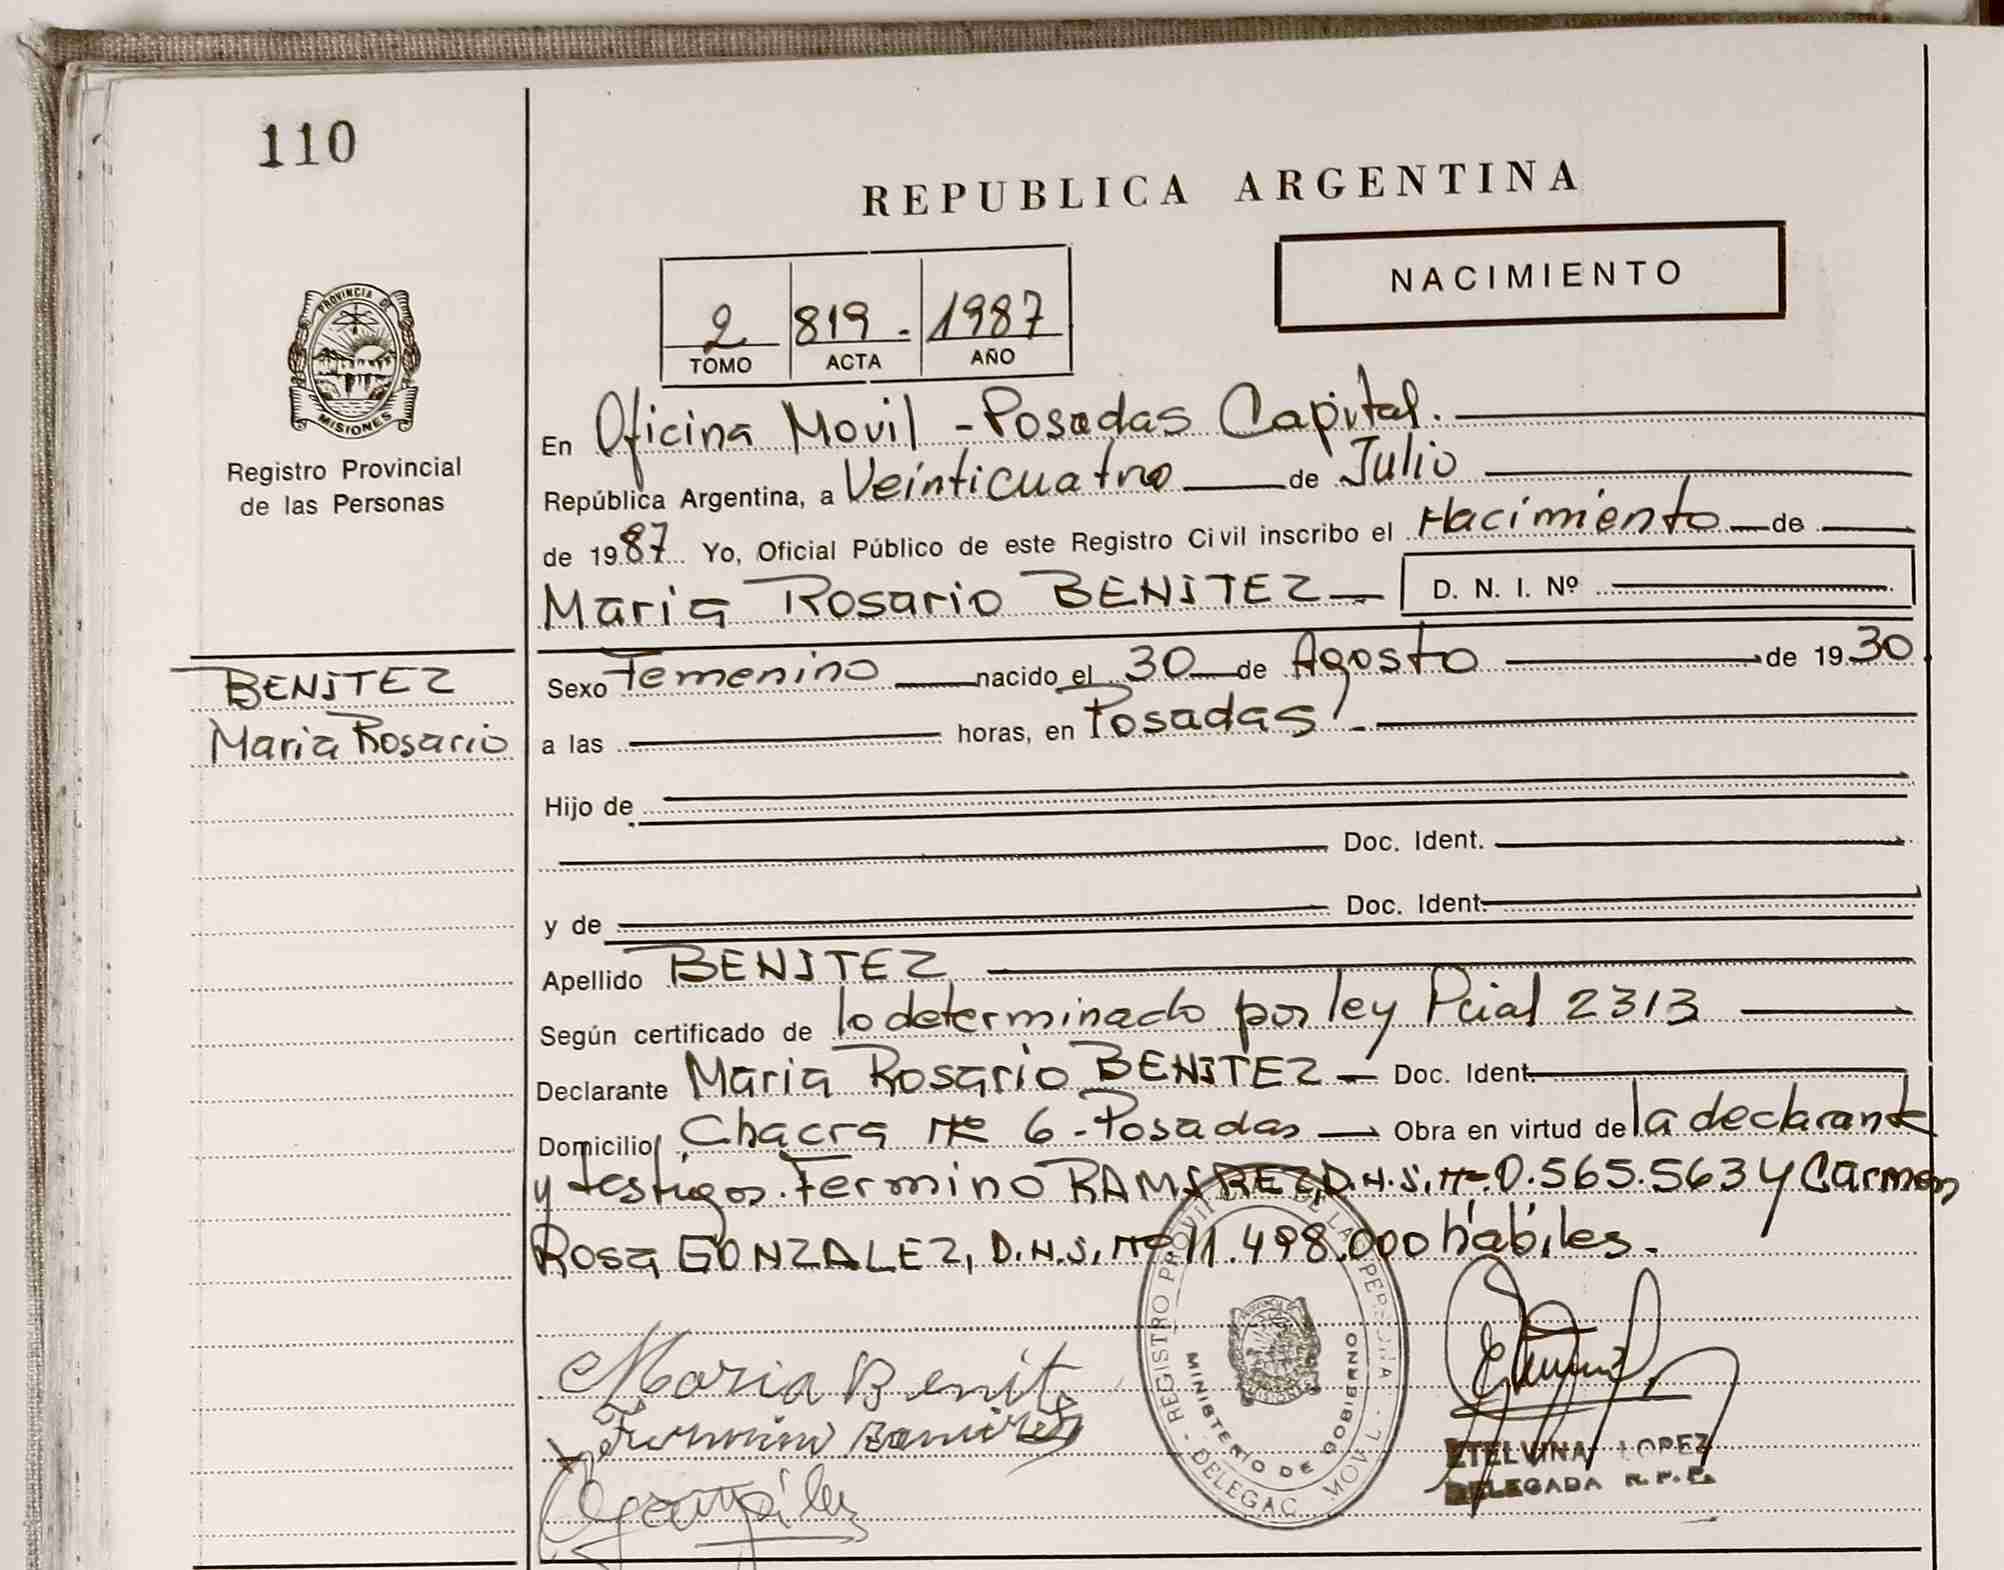 110
REPUBLICA ARGENTINA
NACIMIENTO
2 819 - 1987
TOMO ACTA AÑO
PROVINCIA D
MISIONES
Registro Provincial
de las Personas
En Oficina Movil - Posadas Capital.
República Argentina, a Veinticuatro de Julio
de 1987 Yo, Oficial Público de este Registro Civil inscribo el Nacimiento de
Maria Rosario BENITEZ D. N. I. Nº
BENITEZ
Maria Rosario
Sexo Femenino nacido el 30 de Agosto de 1930
a las horas, en Posadas.-
Hijo de
Doc. Ident.
y de Doc. Ident.
Apellido BENITEZ
Según certificado de lo determinado por ley Pcial 2313
Declarante Maria Rosario BENITEZ Doc. Ident.
Domicilio Chacra Nº 6 - Posadas Obra en virtud de la declarante
y testigos. Fermino RAMIREZ, D.N.I. Nº 0.565.563 y Carmen
Rosa GONZALEZ, D.N.I. Nº 11.498.000 hábiles.-
Maria Benit
Ramirez
REGISTRO PROVI DE LA PER
MINISTERIO DE GOBIERNO
DELEGAC. MOVIL
ETELVINA LOPEZ
DELEGADA R. P. P.